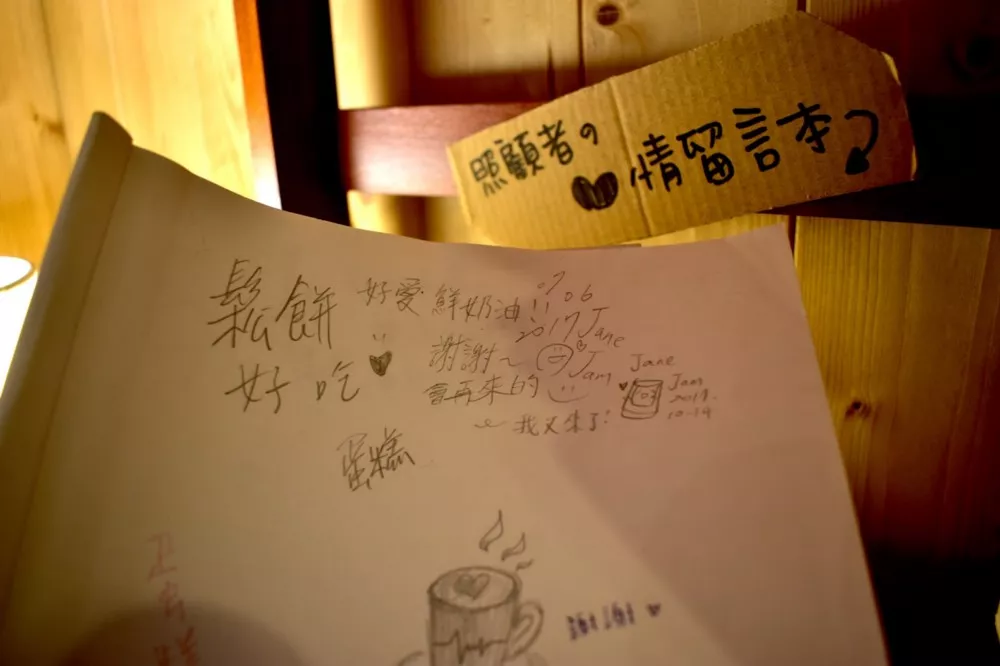 照顧者の
♥情留言本
鬆餅
好吃
好愛鮮奶油!!
07.06
2017 Jane
謝謝~ Jam
會再來的
我又來了!
Jane
Jam
2017.
10-14
蛋糕